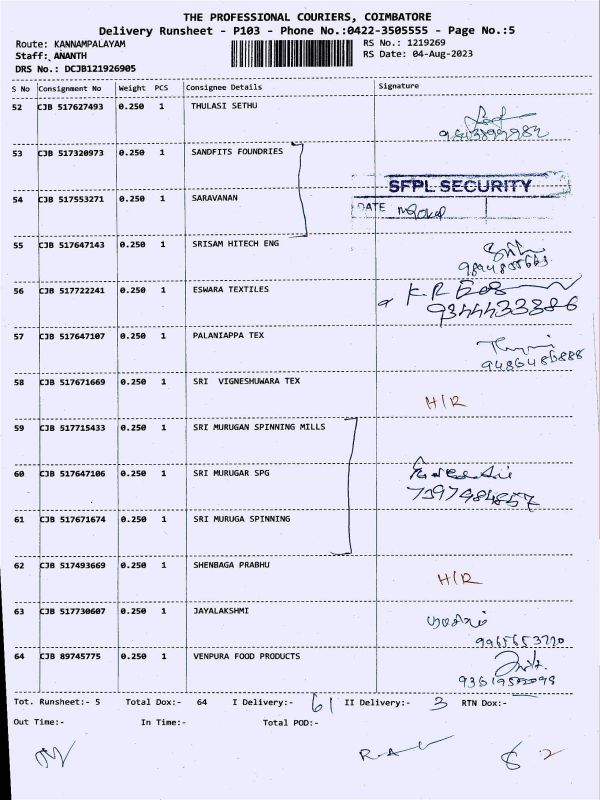 THE PROFESSIONAL COURIERS, COIMBATORE
Delivery Runsheet - P103 - Phone No.:0422-3505555 - Page No.:5
Route: KANNAMPALAYAM RS No.: 1219269
Staff: ANANTH RS Date: 04-Aug-2023
DRS No.: DCJB121926905
S No Consignment No Weight PCS Consignee Details Signature
52 CJB 517627493 0.250 1 THULASI SETHU
53 CJB 517320973 0.250 1 SANDFITS FOUNDRIES
SFPL SECURITY
54 CJB 517553271 0.250 1 SARAVANAN
DATE
55 CJB 517647143 0.250 1 SRISAM HITECH ENG
56 CJB 517722241 0.250 1 ESWARA TEXTILES K.R
9344433386
57 CJB 517647107 0.250 1 PALANIAPPA TEX
9486486888
58 CJB 517671669 0.250 1 SRI VIGNESHUWARA TEX
H/R
59 CJB 517715433 0.250 1 SRI MURUGAN SPINNING MILLS
60 CJB 517647106 0.250 1 SRI MURUGAR SPG
7397484857
61 CJB 517671674 0.250 1 SRI MURUGA SPINNING
62 CJB 517493669 0.250 1 SHENBAGA PRABHU
H/R
63 CJB 517730607 0.250 1 JAYALAKSHMI
9965653720
64 CJB 89745775 0.250 1 VENPURA FOOD PRODUCTS
Tot. Runsheet:- 5 Total Dox:- 64 I Delivery:- 61 II Delivery:- 3 RTN Dox:-
Out Time:- In Time:- Total POD:-